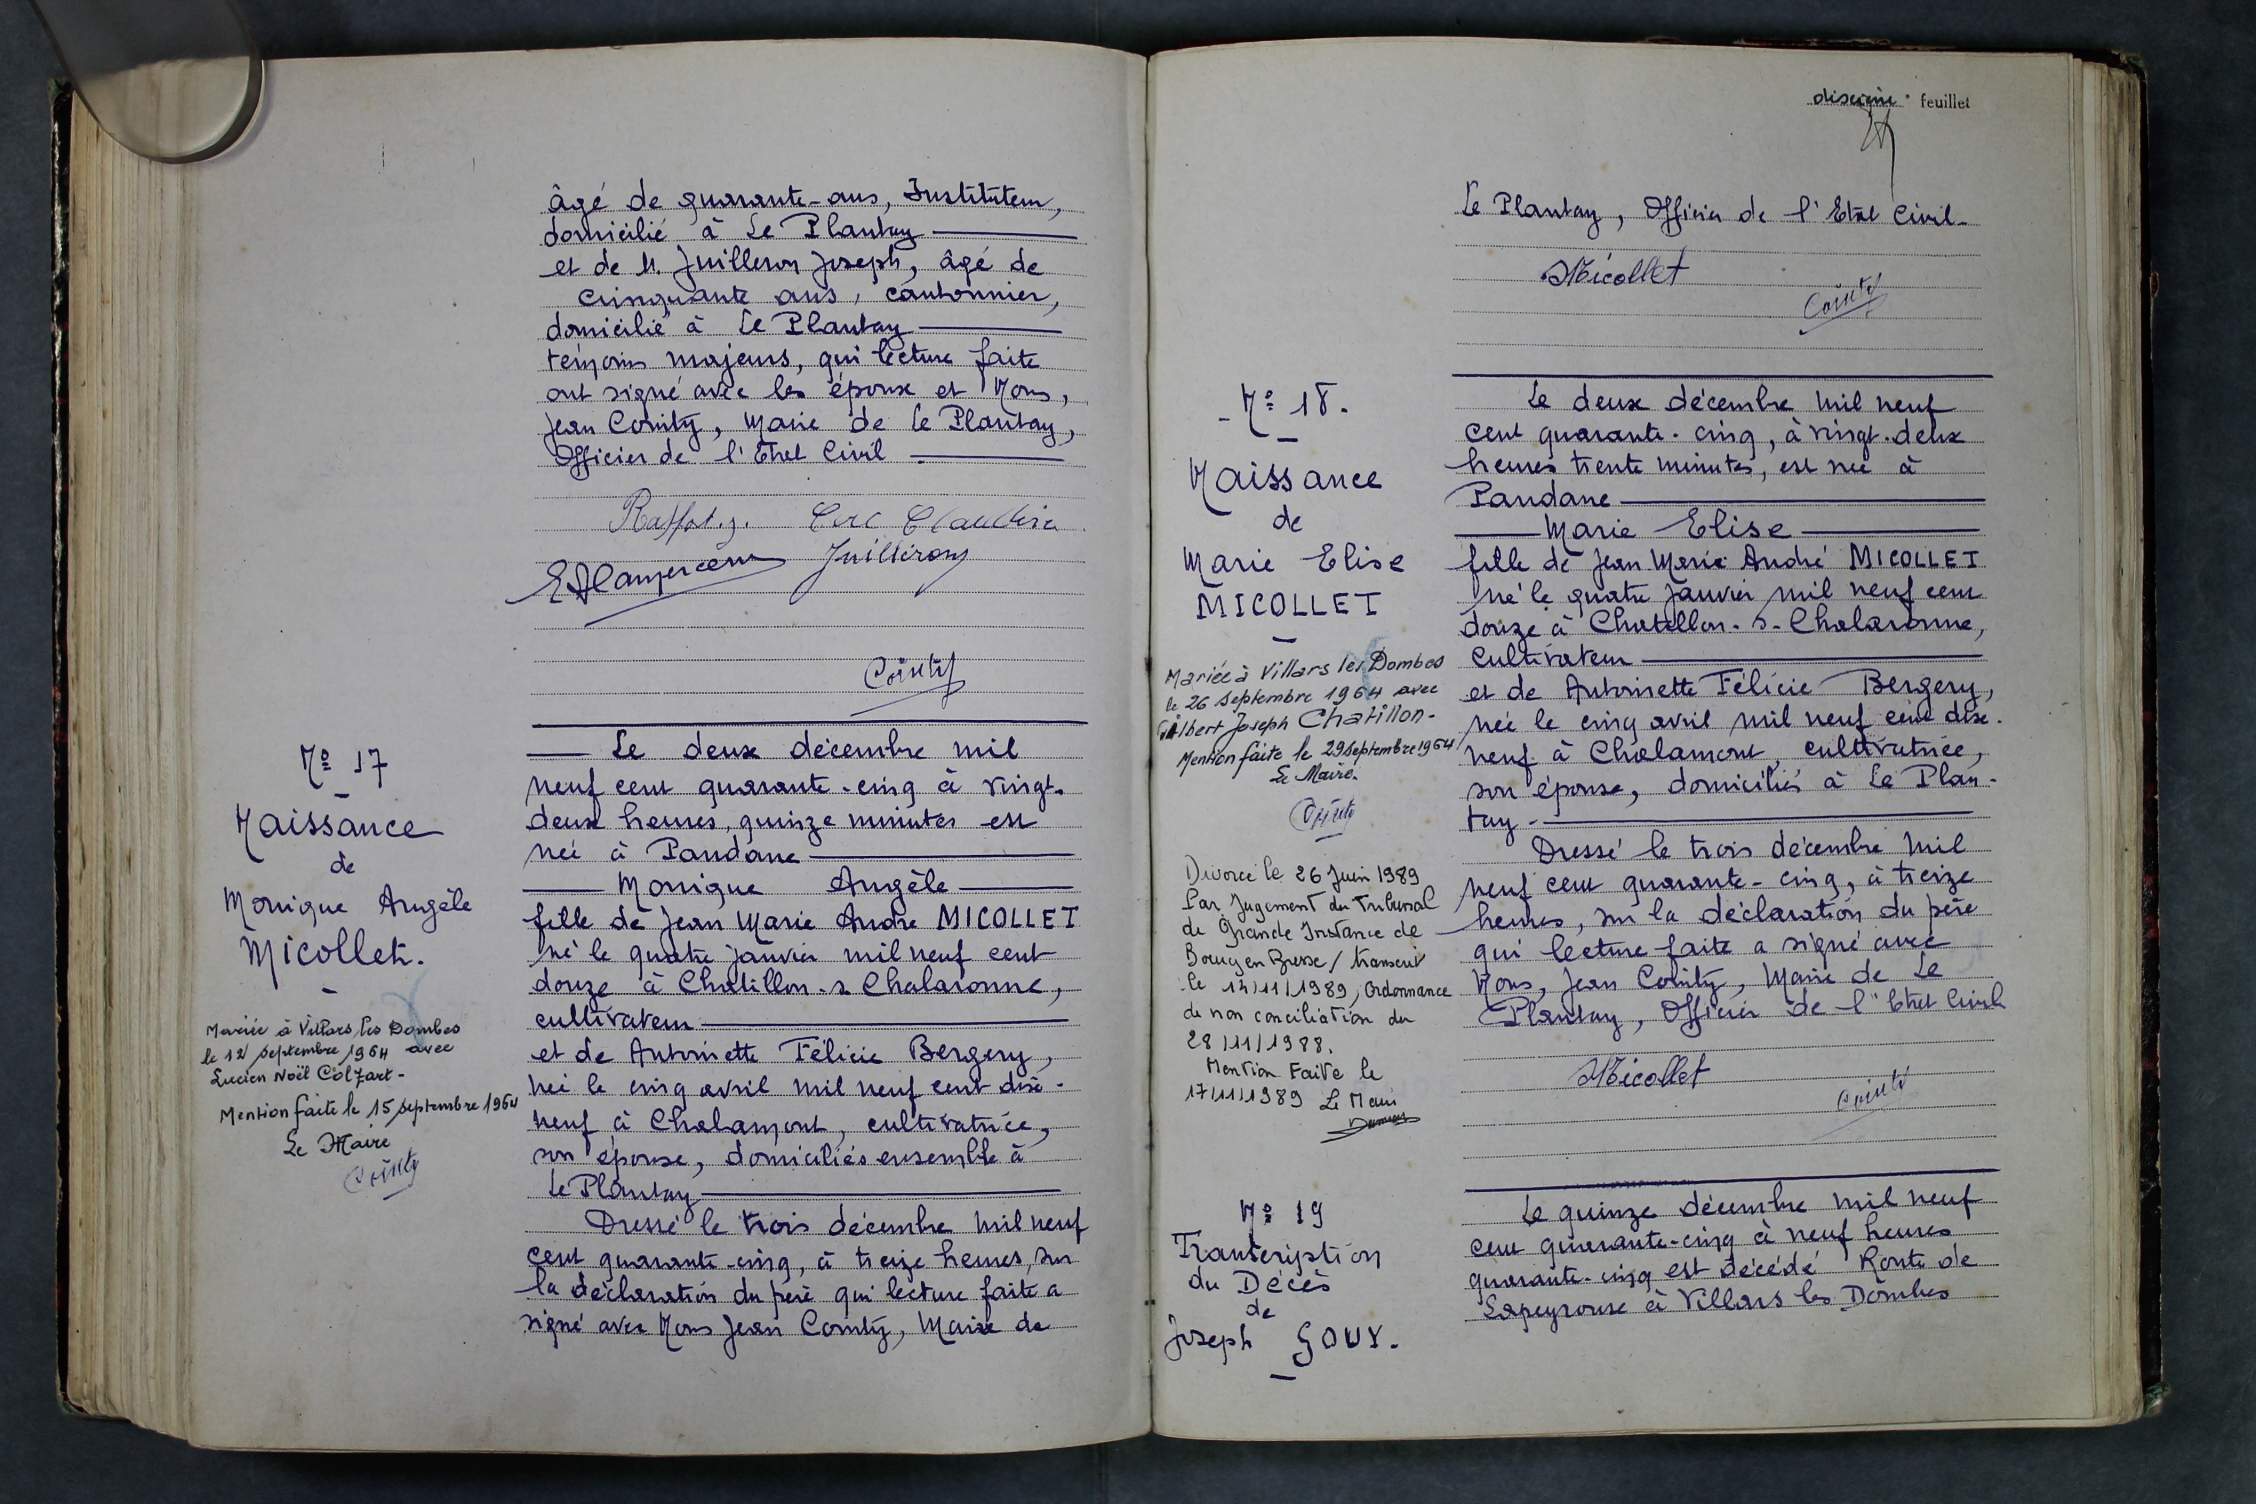 âgé de quarante-ans, Instituteur,
domicilié à Le Plantay
et de M. Juilleron Joseph, âgé de
cinquante ans, cantonnier,
domicilié à Le Plantay
témoins majeurs, qui lecture faite
ont signé avec les époux et Nous,
Jean Cointy, Maire de Le Plantay,
Officier de l'Etat Civil
Juilleron
Cointy
Nº 17
Naissance
de
Monique Angèle
Micollet.
Mariée à Villars les Dombes
le 12 septembre 1964 avec
Lucien Noël Colzart -
Mention faite le 15 septembre 1964
Le Maire
Cointy
Le deux décembre mil
neuf cent quarante-cinq à vingt-
deux heures, quinze minutes est
née à Pandane
Monique Angèle
fille de Jean Marie André MICOLLET
né le quatre janvier mil neuf cent
douze à Chatillon-s Chalaronne,
cultivateur
et de Antoinette Félicie Bergery,
née le cinq avril mil neuf cent dix-
neuf à Chalamont, cultivatrice,
son épouse, domiciliés ensemble à
Le Plantay
Dressé le trois décembre mil neuf
cent quarante-cinq, à treize heures, sur
la déclaration du père qui lecture faite a
signé avec Nous Jean Cointy, Maire de
dixième feuillet
Le Plantay, Officier de l'Etat Civil-
Micollet
Cointy
- Nº 18.
Naissance
de
Marie Elise
MICOLLET
Mariée à Villars les Dombes
le 26 septembre 1964 avec
Albert Joseph Chatillon-
Mention faite le 29 septembre 1964
Le Maire.
Cointy
Divorcé le 26 Juin 1989
Par Jugement du Tribunal
de Grande Instance de
Bourg en Bresse / transcrit
le 14/11/1989, Ordonnance
de non conciliation du
28/11/1988.
Mention Faite le
17/11/1989 Le Maire
Le deux décembre mil neuf
cent quarante-cinq, à vingt-deux
heures trente minutes, est née à
Pandane
Marie Elise
fille de Jean Marie André MICOLLET
né le quatre janvier mil neuf cent
douze à Chatillon-s-Chalaronne,
cultivateur
et de Antoinette Félicie Bergery,
née le cinq avril mil neuf cent dix-
neuf à Chalamont, cultivatrice,
son épouse, domiciliés à Le Plan-
tay-
Dressé le trois décembre mil
neuf cent quarante-cinq, à treize
heures, sur la déclaration du père
qui lecture faite a signé avec
Nous, Jean Cointy, Maire de Le
Plantay, Officier de l'Etat Civil
Micollet
Cointy
Nº 19
Transcription
du Décès
de
Joseph GOUY.
Le quinze décembre mil neuf
cent quarante-cinq à neuf heures
quarante-cinq est décédé Route de
Lapeyrouse à Villars les Dombes